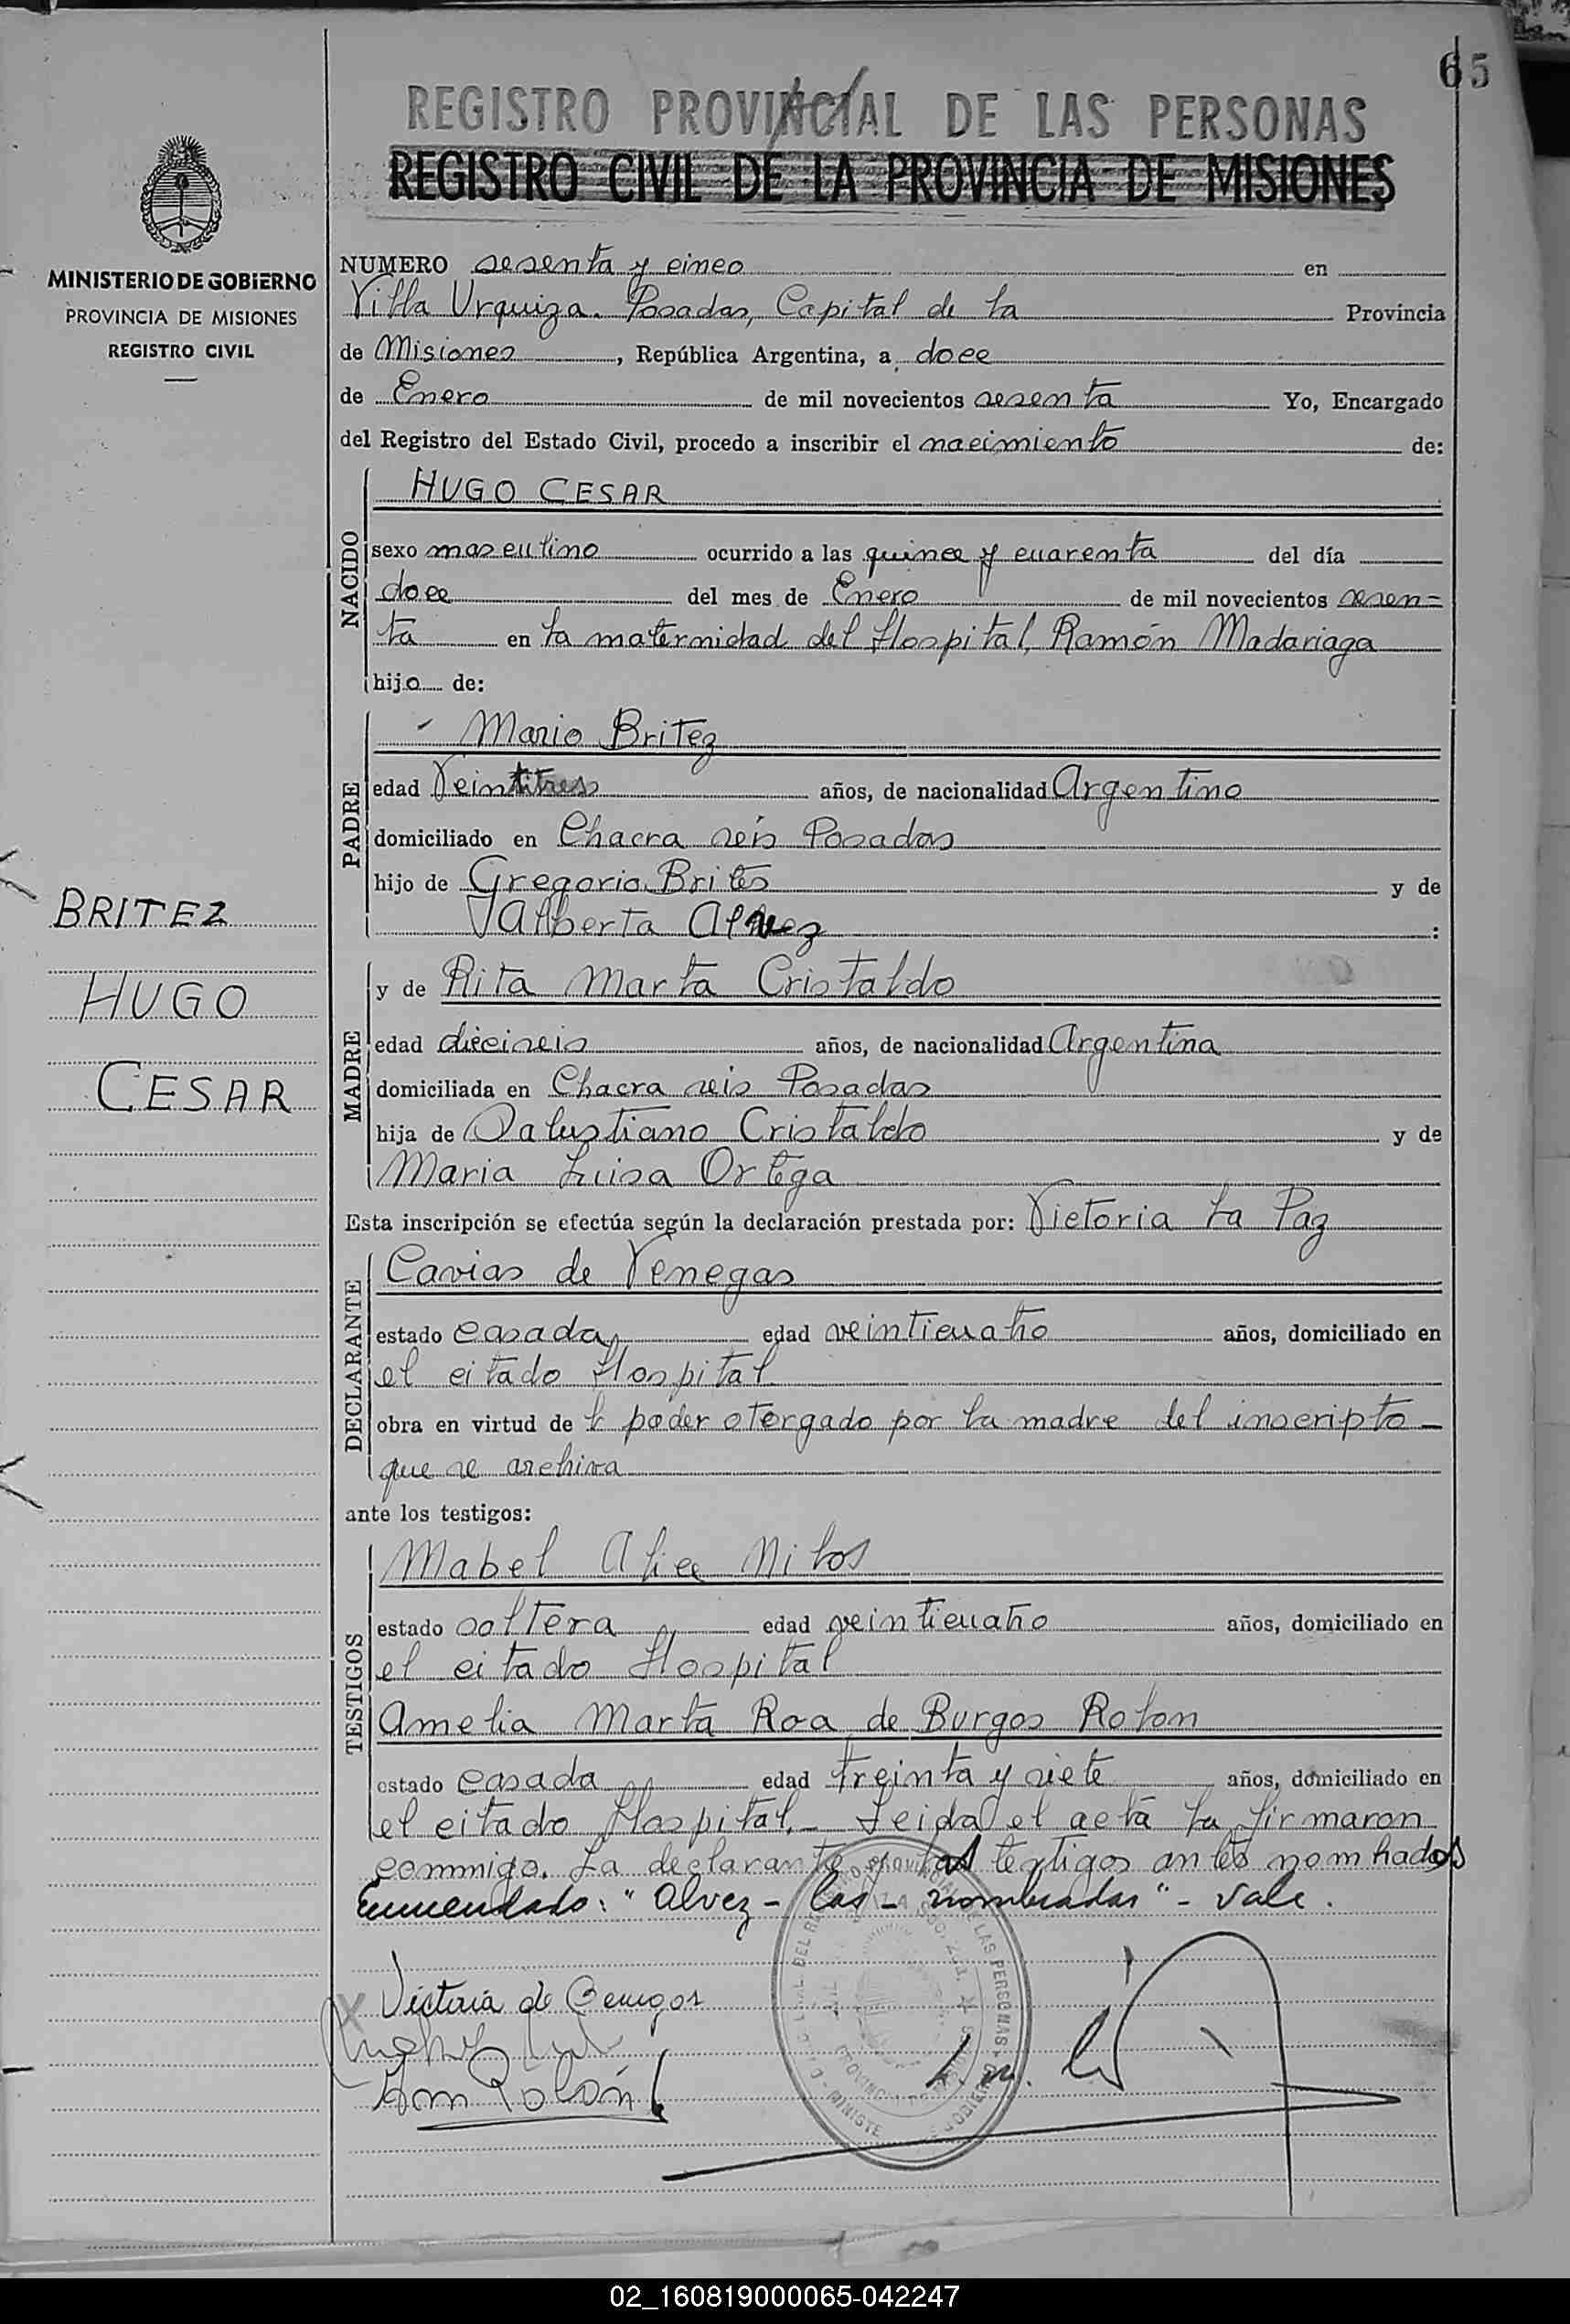 65
REGISTRO PROVINCIAL DE LAS PERSONAS
REGISTRO CIVIL DE LA PROVINCIA DE MISIONES
MINISTERIO DE GOBIERNO
PROVINCIA DE MISIONES
REGISTRO CIVIL
BRITEZ
HUGO
CESAR
NUMERO sesenta y cinco en
Villa Urquiza. Posadas, Capital de la Provincia
de Misiones, República Argentina, a doce
de Enero de mil novecientos sesenta Yo, Encargado
del Registro del Estado Civil, procedo a inscribir el nacimiento de:
NACIDO
HUGO CESAR
sexo masculino ocurrido a las quince y cuarenta del día
doce del mes de Enero de mil novecientos sesen=
ta en la maternidad del Hospital, Ramón Madariaga
hijo de:
PADRE
Mario Britez
edad Veintitres años, de nacionalidad Argentino
domiciliado en Chacra seis Posadas
hijo de Gregorio Brites y de
Alberta Alvez :
MADRE
y de Rita Marta Cristaldo
edad dieciseis años, de nacionalidad Argentina
domiciliada en Chacra seis Posadas
hija de Salustiano Cristaldo y de
Maria Luisa Ortega
Esta inscripción se efectúa según la declaración prestada por: Victoria La Paz
DECLARANTE
Cavias de Venegas
estado casada edad veinticuatro años, domiciliado en
el citado Hospital
obra en virtud de poder otorgado por la madre del inscripto
que se archiva
ante los testigos:
TESTIGOS
Mabel Alice
estado soltera edad veinticuatro años, domiciliado en
el citado Hospital
Amelia Marta Roa de Burgos Rolon
estado casada edad treinta y siete años, domiciliado en
el citado Hospital.- Leida el acta la firmaron
conmigo. La declarante y las testigos antes nombradas
Enmendado: "Alvez - las - nombradas" - Vale.
Victoria de Venegas
Rolón
02_160819000065-042247